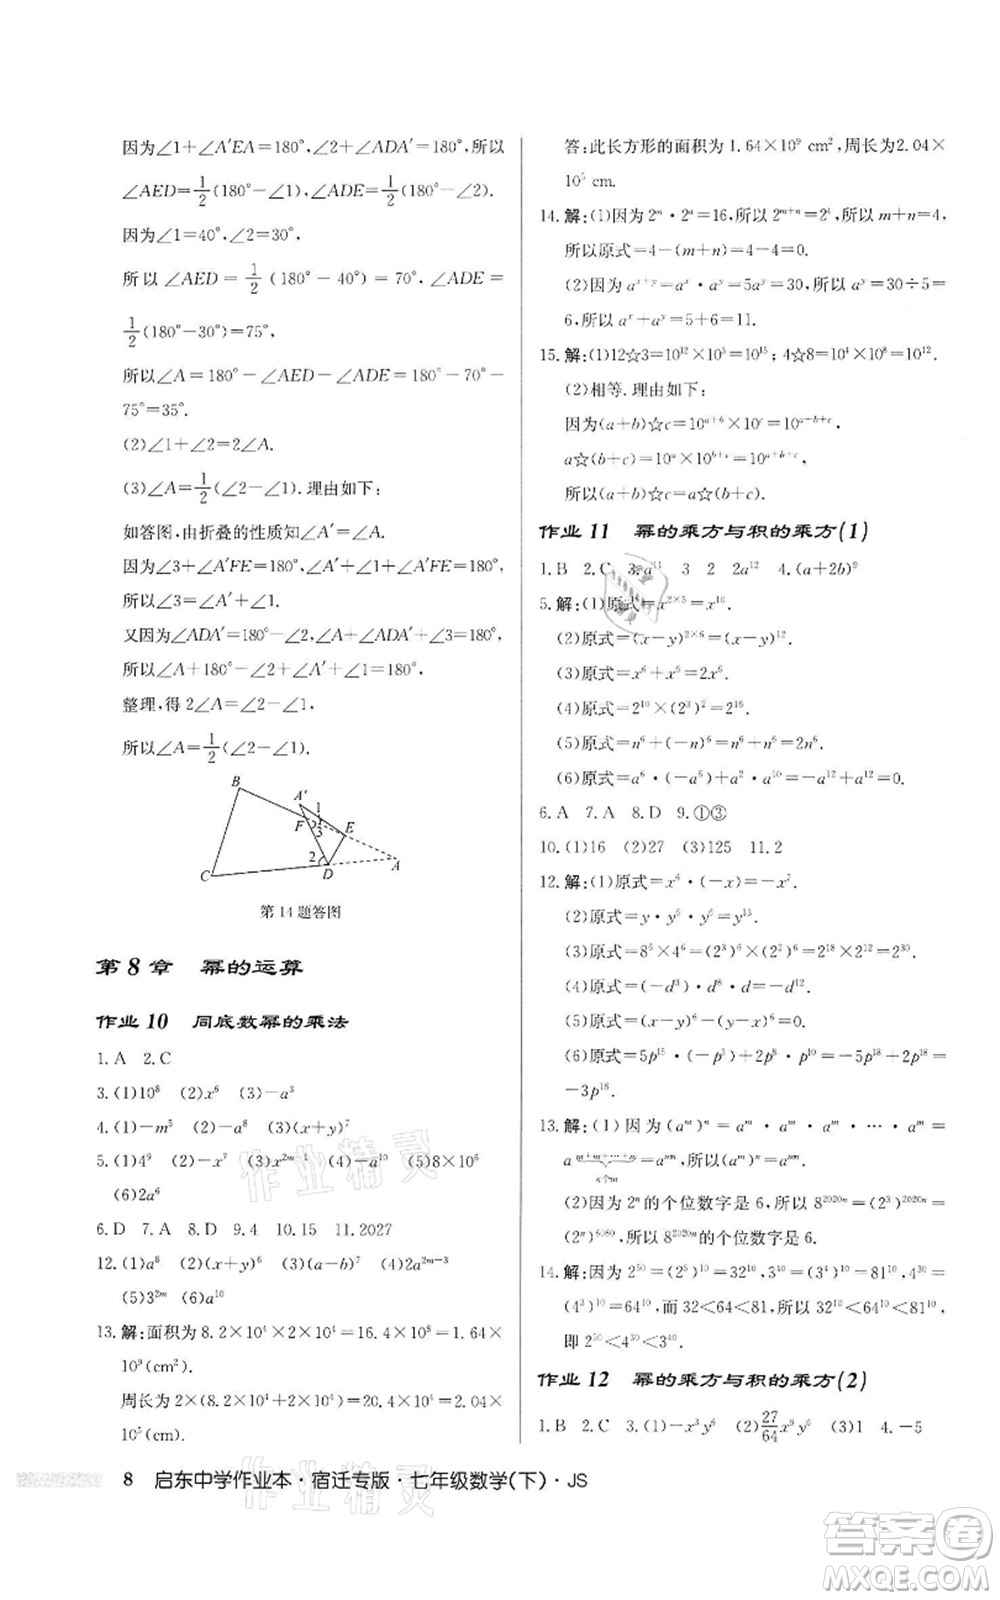 因为∠1+∠A′EA=180°,∠2+∠ADA′=180°,所以
∠AED=1/2(180°-∠1),∠ADE=1/2(180°-∠2).
因为∠1=40°,∠2=30°,
所以∠AED=1/2(180°-40°)=70°,∠ADE=
1/2(180°-30°)=75°,
所以∠A=180°-∠AED-∠ADE=180°-70°-
75°=35°.
(2)∠1+∠2=2∠A.
(3)∠A=1/2(∠2-∠1).理由如下:
如答图,由折叠的性质知∠A′=∠A.
因为∠3+∠A′FE=180°,∠1+∠A′+∠A′FE=180°,
所以∠3=∠A′+∠1.
又因为∠ADA′=180°-∠2,∠A+∠ADA′+∠3=180°,
所以∠A+180°-∠2+∠A′+∠1=180°,
整理,得2∠A=∠2-∠1,
所以∠A=1/2(∠2-∠1).
B
A′
1
F
3
E
2
C
D
A
第14题答图
第8章 幂的运算
作业10 同底数幂的乘法
1.A 2.C
3.(1)10⁸ (2)x⁶ (3)-a³
4.(1)-m⁵ (2)-a⁸ (3)(x+y)⁷
5.(1)4⁹ (2)-x⁷ (3)x²ᵐ⁻¹ (4)-a¹⁰ (5)8×10⁶
(6)2a⁶
6.D 7.A 8.D 9.4 10.15 11.2027
12.(1)a⁸ (2)(x+y)⁶ (3)(x-y)⁶ (4)a²ᵐ⁻³
(5)3²ᵐ (6)a¹⁰
13.解:面积为8.2×10⁴×2×10⁴=16.4×10⁸=1.64×
10⁹(cm²).
周长为2×(8.2×10⁴+2×10⁴)=20.4×10⁴=2.04×
10⁵(cm).
答:此长方形的面积为1.64×10⁹ cm²,周长为2.04×
10⁵ cm.
14.解:(1)因为2ᵐ·2ⁿ=16,所以2ᵐ⁺ⁿ=2⁴,所以m+n=4,
所以原式=4-(m+n)=4-4=0.
(2)因为aˣ⁺ʸ=aˣ·aʸ=5aʸ=30,所以aʸ=30÷5=
6,所以aˣ+aʸ=5+6=11.
15.解:(1)12☆3=10¹²×10³=10¹⁵;4☆8=10⁴×10⁸=10¹².
(2)相等.理由如下:
因为(a+b)☆c=10ᵃ⁺ᵇ×10ᶜ=10ᵃ⁺ᵇ⁺ᶜ,
a☆(b+c)=10ᵃ×10ᵇ⁺ᶜ=10ᵃ⁺ᵇ⁺ᶜ,
所以(a+b)☆c=a☆(b+c).
作业11 幂的乘方与积的乘方(1)
1.B 2.C 3.a¹¹ 3 2 2a¹² 4.(a+2b)⁹
5.解:(1)原式=x²ˣ⁵=x¹⁰.
(2)原式=(x-y)²ˣ⁶=(x-y)¹².
(3)原式=x⁶+x⁶=2x⁶.
(4)原式=2¹⁰×(2³)²=2¹⁶.
(5)原式=n⁶+(-n)⁶=n⁶+n⁶=2n⁶.
(6)原式=a⁶·(-a⁶)+a²·a¹⁰=-a¹²+a¹²=0.
6.A 7.A 8.D 9.①③
10.(1)16 (2)27 (3)125 11.2
12.解:(1)原式=x⁶·(-x)=-x⁷.
(2)原式=y·y⁶·y⁶=y¹³.
(3)原式=8⁶×4⁶=(2³)⁶×(2²)⁶=2¹⁸×2¹²=2³⁰.
(4)原式=(-d³)·d⁸·(-d)=d¹².
(5)原式=x³ᵐ·x⁶=x³ᵐ⁺⁶.
(6)原式=5p¹⁵·(-p³)+2p¹⁸=-5p¹⁸+2p¹⁸=
-3p¹⁸.
13.解:(1)因为(aᵐ)ⁿ=aᵐ·aᵐ·aᵐ·…·aᵐ=
aᵐ⁺ᵐ⁺…⁺ᵐ n个m=aᵐⁿ,所以(aᵐ)ⁿ=aᵐⁿ.
(2)因为2ⁿ的个位数字是6,所以8²⁰²⁰ⁿ=(2³)²⁰²⁰ⁿ=
(2ⁿ)⁶⁰⁶⁰,所以8²⁰²⁰ⁿ的个位数字是6.
14.解:因为2⁵⁰=(2⁵)¹⁰=32¹⁰,3⁴⁰=(3⁴)¹⁰=81¹⁰,4³⁰=
(4³)¹⁰=64¹⁰,而32<64<81,所以32¹⁰<64¹⁰<81¹⁰,
即2⁵⁰<4³⁰<3⁴⁰.
作业12 幂的乘方与积的乘方(2)
1.B 2.C 3.(1)-x³y⁶ (2)27/64x⁹y⁶ (3)1 4.-5
8 启东中学作业本·宿迁专版·七年级数学(下)·JS
作业精灵
作业精灵
答案卷
MXQE.COM